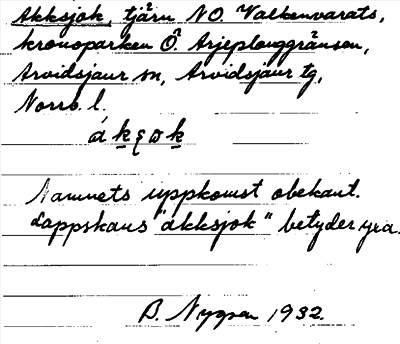 Akksjok, tjärn NO. Valkenvarats,
kronoparken Ö. Arjeplouggränsen,
Arvidsjaur sn, Arvidsjaur tg,
Norrb. l.
Namnets uppkomst obekant.
Lappskans "akksjok" betyder yxa.
B. Nygren 1932.